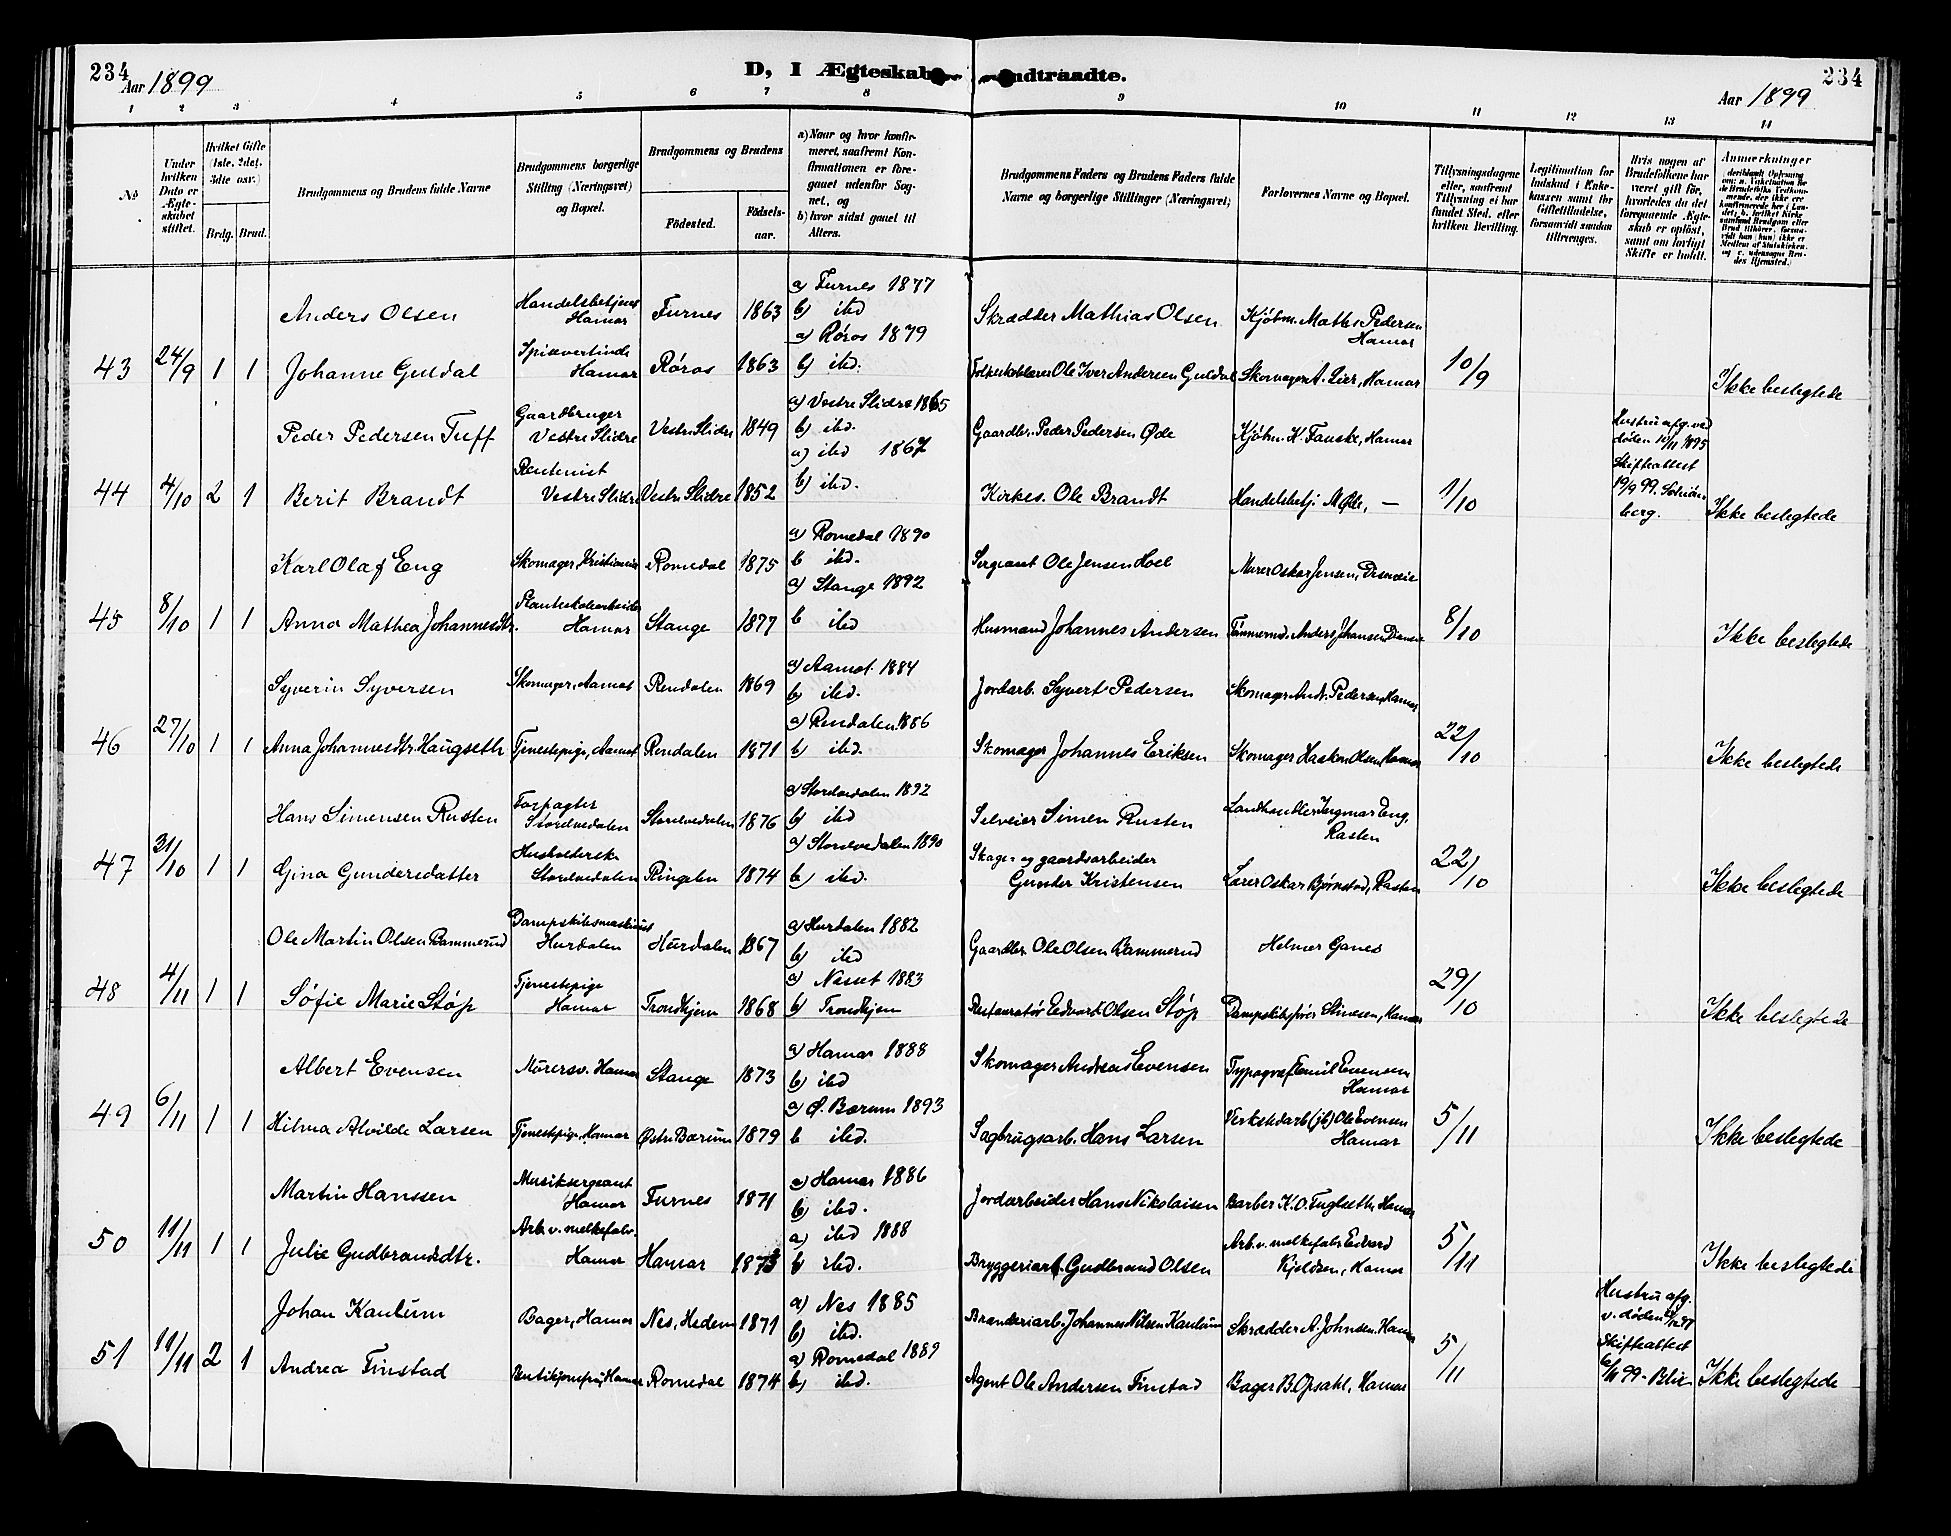 234
Aar 1899
D, I Ægteskab indtraadte.
234
Aar 1899
1 2 3 4 5 6 7 8 9 10 11 12 13 14
№
Under hvilken Dato er Ægteskabet stiftet.
Hvilket Gifte (1ste, 2det, 3die osv.)
Brdg. Brud.
Brudgommens og Brudens fulde Navne
Brudgommens borgerlige Stilling (Næringsvei) og Bopæl.
Brudgommens og Brudens
Födested. Födselsaar.
a) Naar og hvor konfirmeret, saafremt Konfirmationen er foregaaet udenfor Sognet, og
b) hvor sidst gaaet til Alters.
Brudgommens Faders og Brudens Faders fulde Navne og borgerlige Stillinger (Næringsvei)
Forlovernes Navne og Bopæl.
Tillysningsdagene eller, saafremt Tillysning ei har fundet Sted, efter hvilken Bevilling.
Legitimation for Indskud i Enkekassen samt for Giftetilladelse, forsaavidt saadan tiltrænges.
Hvis nogen af Brudefolkene har været gift för, hvorledes da det foregaaende Ægteskab er oplöst, samt om lovligt Skifte er holdt.
Anmerkninger
Anders Olsen Handelsbetjent Hamar Furnes 1863 a) Furnes 1877 b) ibd Skrædder Mathias Olsen Kjøbm. Mathis Pedersen Hamar
43 24/9 1 1 Johanne Guldal Spisevertinde Hamar Røros 1863 a) Røros 1879 b) ibd. Folkeskolelærer Ole Iver Andersen Guldal Skomager A. Lier, Hamar 10/9 Ikke beslegtede
Peder Pedersen Tuff Gaardbruger Vestre Slidre Vestre Slidre 1849 a) Vestre Slidre 1865 b) ibd. Gaardbr. Peder Pedersen Øde Kjøbm. K. Fauske, Hamar Hustru afg. ved døden 10/11 1895
44 4/10 2 1 Berit Brandt Rentenist Vestre Slidre Vestre Slidre 1852 a) ibd 1867 b) ibd. Kirkes. Ole Brandt Handelsbetj. M. Øde, — 1/10 Skifteattest 19/9 99. Ikke beslegtede
Karl Olaf Eng Skomager, Kristiania Romedal 1875 a) Romedal 1890 b ibd. Sergeant Ole Jensen Hoel Murer Oskar Jensen, Disenveien
45 8/10 1 1 Anna Mathea Johannesdtr. Planteskolearbeider Hamar Stange 1877 a) Stange 1892 b ibd Husmand Johannes Andersen Tømmermd. Anders Johansen 8/10 Ikke beslegtede
Syverin Syversen Skomager, Aamot Rendalen 1869 a) Aamot 1884 b) ibd. Jordarb. Syvert Pedersen Skomager And. Pedersen, Hamar
46 27/10 1 1 Anna Johannesdtr. Haugseth Tjenestepige, Aamot Rendalen 1871 a) Rendalen 1886 b) ibd. Skomager Johannes Eriksen Skomager Haakon Olsen, Hamar 22/10 Ikke beslegtede
Hans Simensen Rusten Forpagter Storelvedalen Storelvedalen 1876 a) Storelvedalen 1892 b) ibd Selveier Simen Rusten Landhandler Ingmar Eng, Rasten
47 31/10 1 1 Gina Gundersdatter Husholderske Storelvedalen Ringelen 1874 a) Storelvedalen 1890 b) ibd. Skage- og gaardsarbeider Gunder Kristensen Lærer Oskar Bjørnstad, Rasten 22/10 Ikke beslegtede
Ole Martin Olsen Bammerud Dampskibsmaskinist Hurdalen Hurdalen 1867 a) Hurdalen 1882 b) ibd Gaardbr. Ole Olsen Bammerud Helmer Ganes
48 4/11 1 1 Sofie Marie Støp Tjenestepige Hamar Trondhjem 1868 a) Nesset 1883 b) Trondhjem Restauratør Edvart Olsen Støp Dampskibsfører Stinesen, Hamar 29/10 Ikke beslegtede
Albert Evensen Murersv. Hamar Stange 1873 a) Hamar 1888 b) ibd Skomager Andreas Evensen Typograf Emil Evensen Hamar
49 6/11 1 1 Hilma Alvilde Larsen Tjenestepige, Hamar Østre Bærum 1879 a) Ø. Bærum 1893 b ibd. Sagbrugsarb. Hans Larsen Verkstedarb (jb) Ole Evensen Hamar 5/11 Ikke beslegtede
Martin Hanssen Musiksergeant Hamar Furnes 1871 a) Hamar 1886 b) ibd. Jordarbeider Hans Nikolaisen Barber K. O. Fuglseth, Hamar
50 11/11 1 1 Julie Gudbrandsdtr. Arb. v. melkefabr. Hamar Hamar 1873 a) ibd 1888 b ibd. Bryggeriarb. Gudbrand Olsen Arb. v. melkefabr. Edvard Kjeldsen, Hamar 5/11 Ikke beslegtede
Johan Kaulum Bager, Hamar Nes, Hedem 1871 a) Nes 1885 b) ibd. Brænderiarb. Johannes Nilsen Kaulum Skrædder A. Johnsen, Hamar Hustru afg. v. døden
51 11/11 2 1 Andrea Finstad Butikjomfru, Hamar Romedal 1874 a) Romedal 1889 b) ibd. Agent Ole Andersen Finstad Bager B. Opsahl, Hamar 5/11 Skifteattest 6/11 99 - Blix Ikke beslegtede